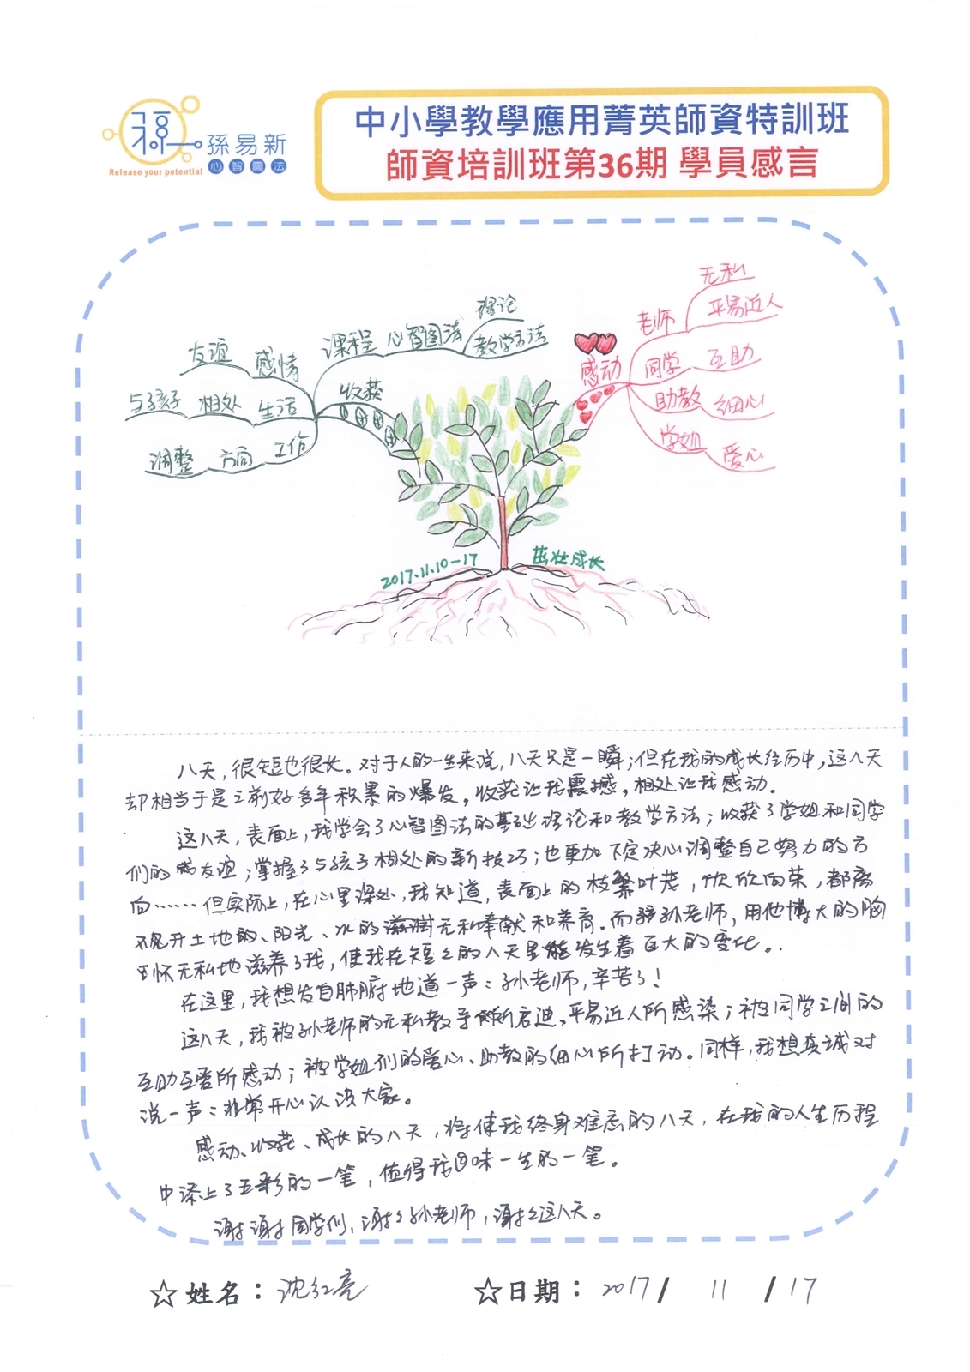 孫易新
心智圖法
Release your potential
中小學教學應用菁英師資特訓班
師資培訓班第36期 學員感言
无私
平易近人
老师
理论
教学方法
心智图法
课程
感动
同学
互助
友谊
感情
收获
助教
细心
与孩子
相处
生活
学姐
爱心
调整
方向
工作
2017.11.10-17
茁壮成长
八天，很短也很长。对于人的一生来说，八天只是一瞬；但在我的成长经历中，这八天
却相当于是之前好多年积累的爆发，收获让我震撼，相处让我感动．
这八天，表面上，我学会了心智图法的基础理论和教学方法；收获了学姐和同学
们的友谊；掌握了与孩子相处的新技巧；也更加下定决心调整自己努力的方
向……但实际上，在心里深处，我知道，表面上的枝繁叶茂，欣欣向荣，都离
不开土地的、阳光、水的滋润无私奉献和养育。而孙老师，用他博大的胸
怀无私地滋养了我，使我在短短的八天里能发生着巨大的变化。
在这里，我想发自肺腑地道一声：孙老师，辛苦了！
这八天，我被孙老师的无私教导所启迪、平易近人所感染；被同学之间的
互助互爱所感动；被学姐们的爱心、助教的细心所打动。同样，我想真诚对
说一声：非常开心认识大家。
感动、收获、成长的八天，将使我终身难忘的八天，在我的人生历程
中添上了五彩的一笔，值得我回味一生的一笔。
谢谢同学们，谢谢孙老师，谢谢这八天。
☆姓名：沈红亮
☆日期：2017/ 11 /17